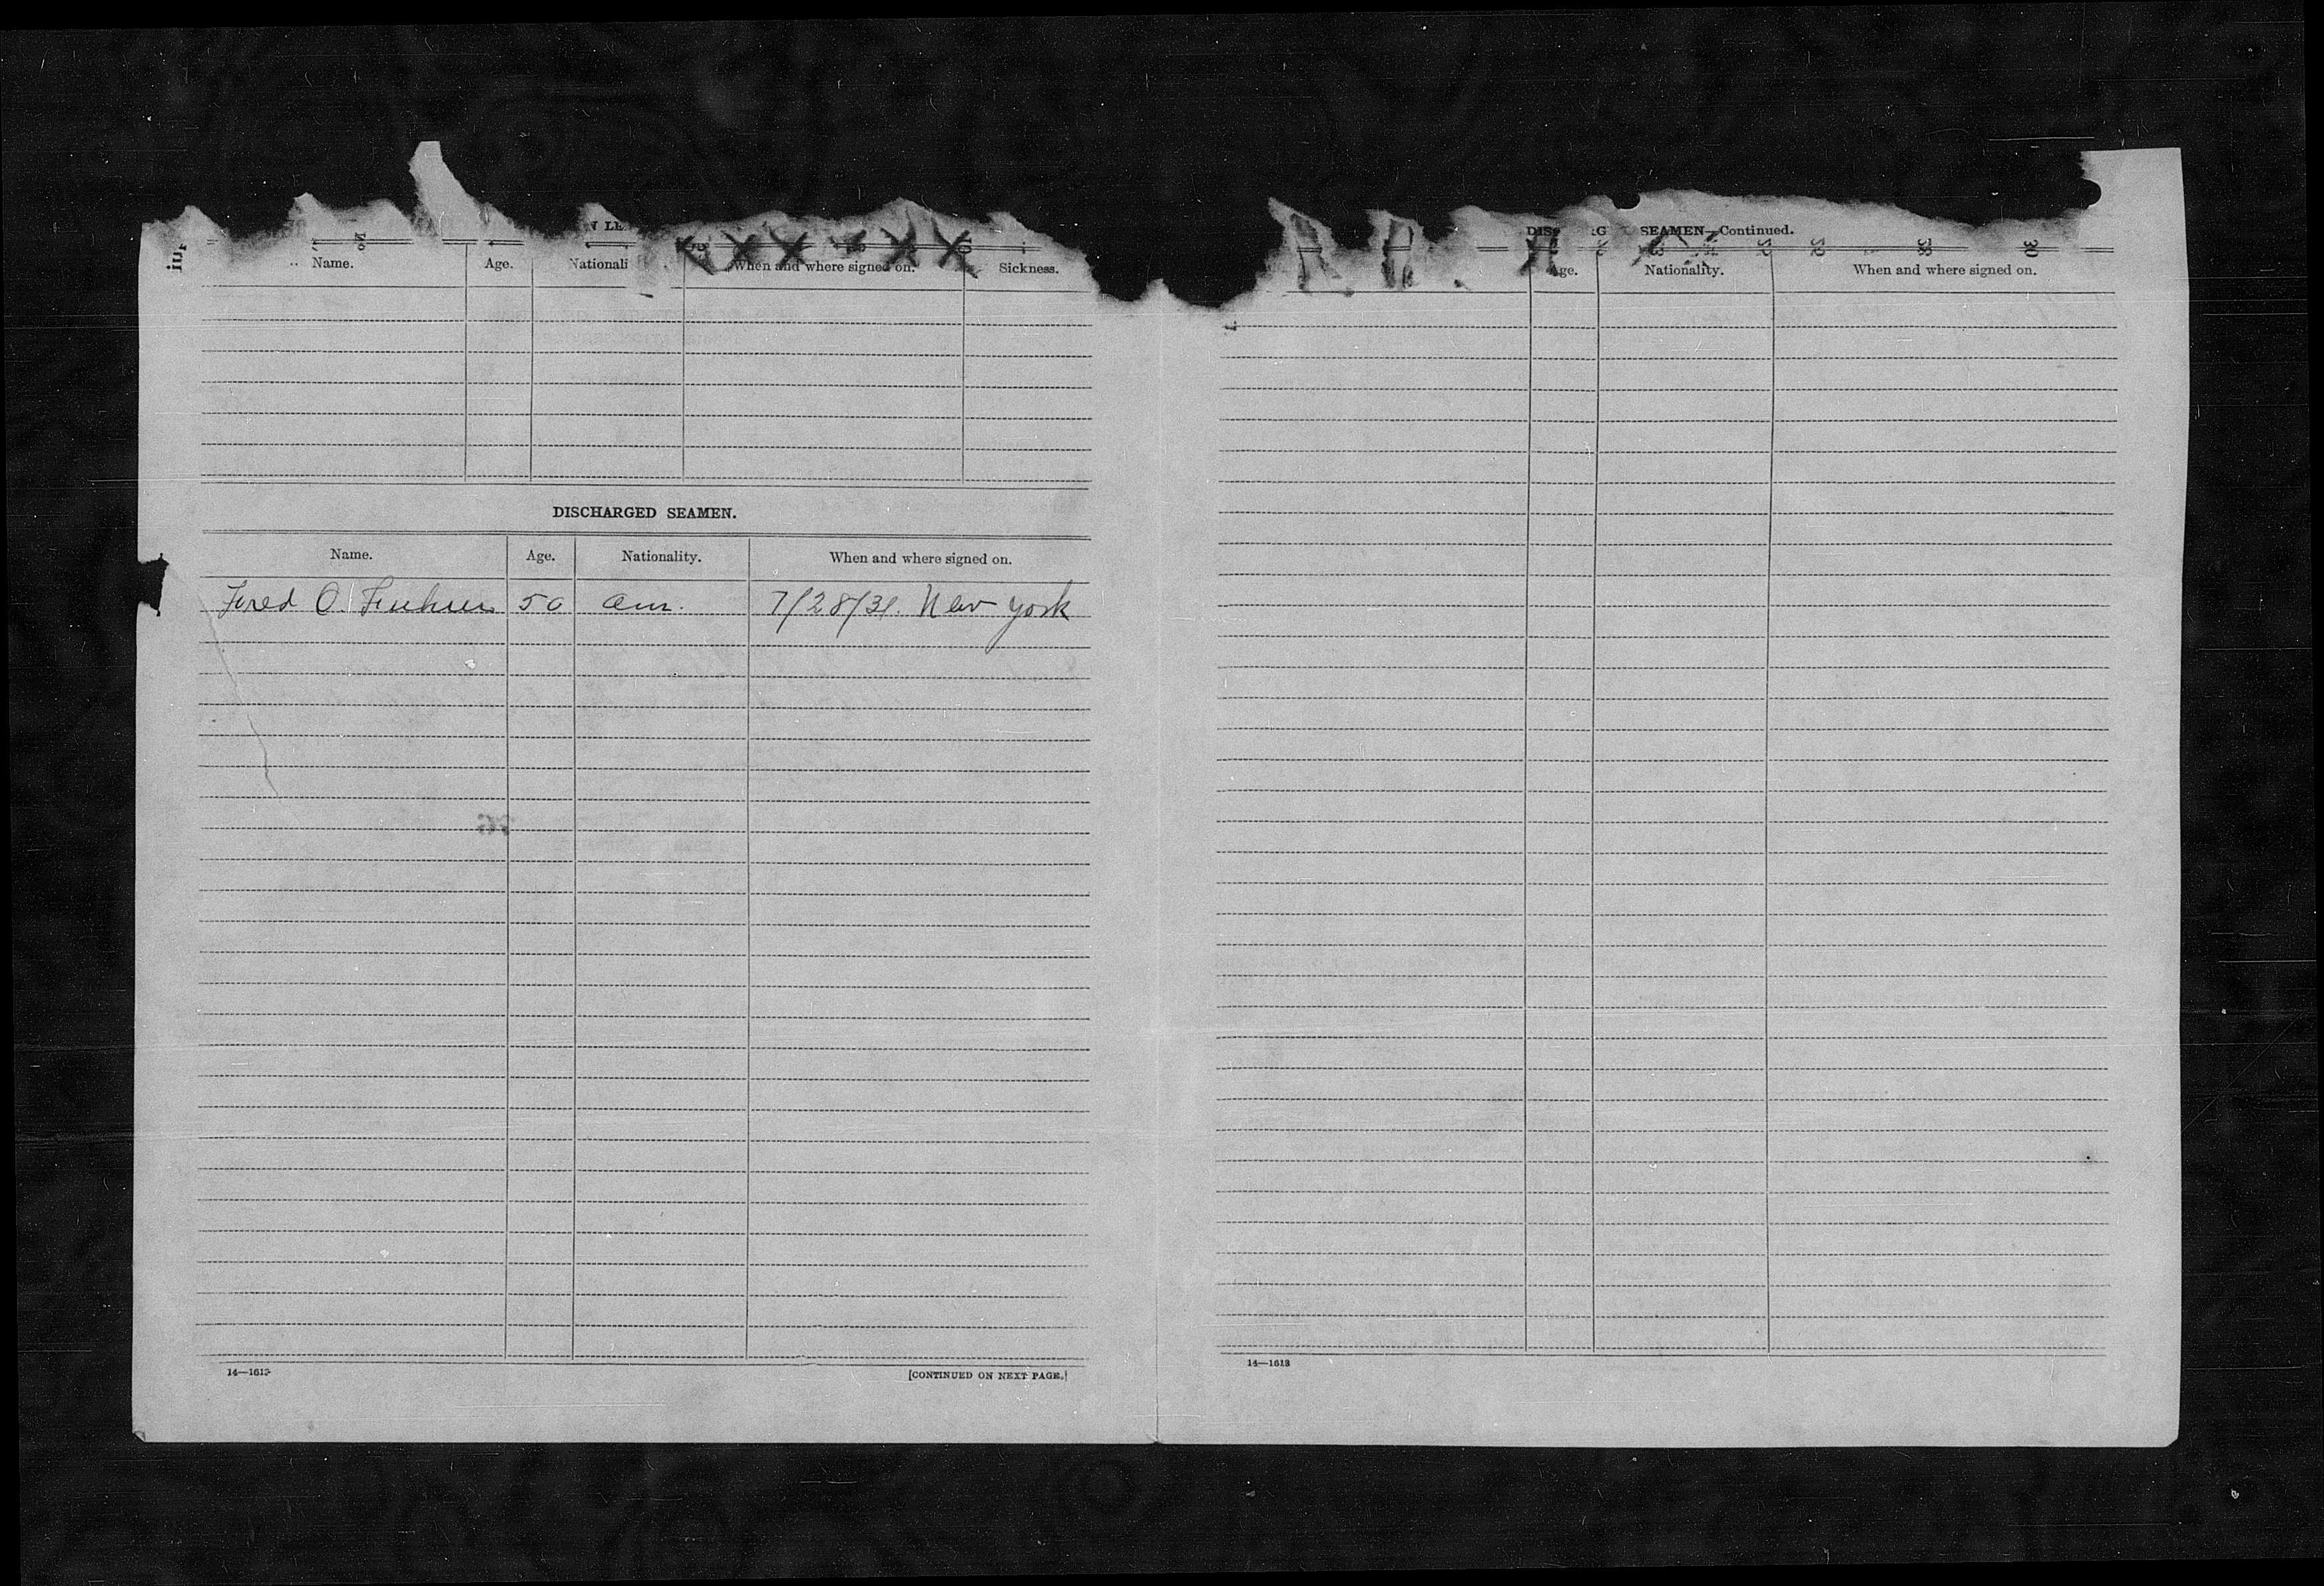 Name. Age. When and where signed on. Sickness.
DISCHARGED SEAMEN.
Name. Age. Nationality. When and where signed on.
Fred O. 50 Am. 7/28/31. New York
14—1613 [CONTINUED ON NEXT PAGE.]
SEAMEN—Continued.
Age. Nationality. When and where signed on.
14—1613